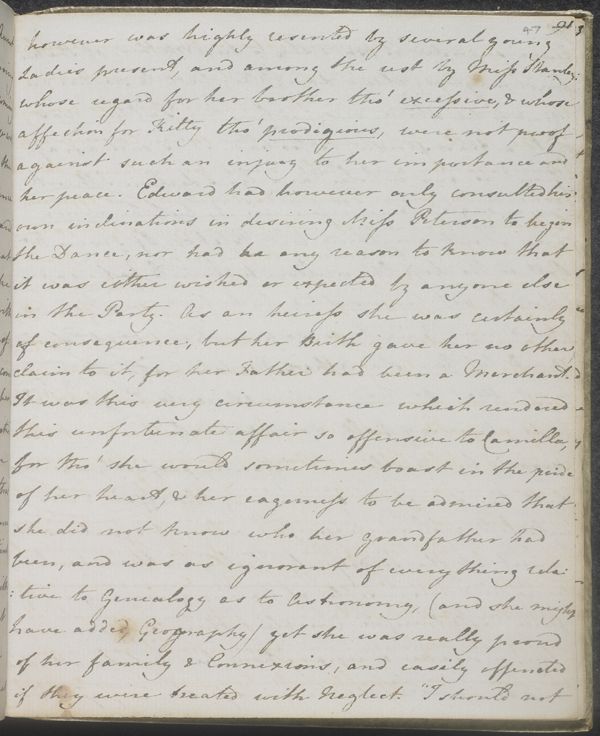 47 91
however was highly resented by several young
Ladies present, and among the rest by Miss Stanley
whose regard for her brother tho' excessive, & whose
affection for Kitty tho' prodigious, were not proof
against such an injury to her importance and
her peace. Edward had however only consulted his
own inclinations in desiring Miss Peterson to begin
the Dance, nor had he any reason to know that
it was either wished or expected by anyone else
in the Party. As an heiress she was certainly
of consequence, but her Birth gave her no other
claim to it, for her Father had been a Merchant.
It was this very circumstance which rendered
this unfortunate affair so offensive to Camilla,
for tho' she would sometimes boast in the pride
of her heart, & her eagerness to be admired that
she did not know who her grandfather had
been, and was as ignorant of everything rela:
:tive to Genealogy as to Astronomy, (and she might
have added Geography) yet she was really proud
of her family & Connexions, and easily offended
if they were treated with Neglect. "I should not